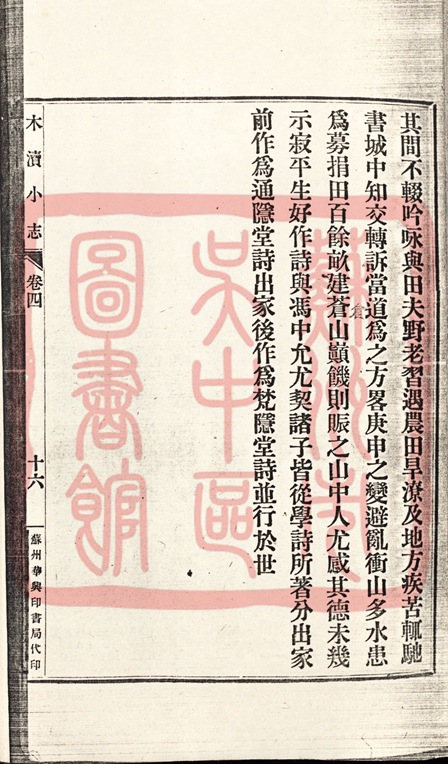 其間不輟吟咏與田夫野老習遇農田旱潦及地方疾苦輒馳
書城中知交轉訴當道爲之方畧庚申之變避亂衝山多水患
爲募捐田百餘畝建蒼山巔饑則賑之山中人尤感其德未幾
倉
示寂平生好作詩與馮中允尤契諸子皆從學詩所著分出家
前作爲通隱堂詩出家後作爲梵隱堂詩並行於世
木瀆小志
卷四
十六
蘇州華興印書局代印
蘇州市
吳中區
圖書館